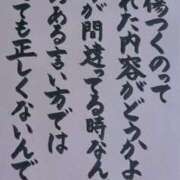 傷つくのって
れた内容がどうかよ
が間違ってる時なん
のある言い方では
ても正しくないんで